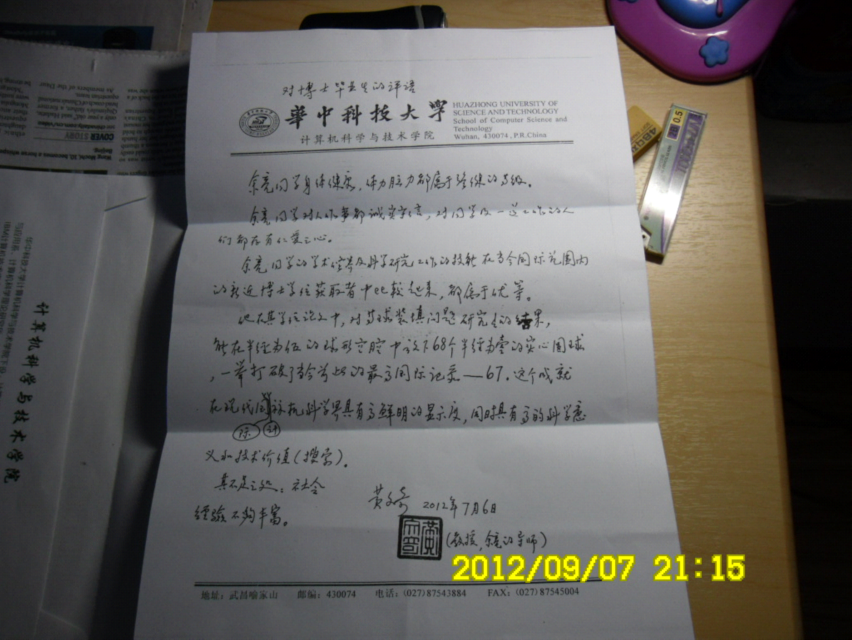 对博士毕业生的评语
華中科技大学
HUAZHONG UNIVERSITY OF
SCIENCE AND TECHNOLOGY
School of Computer Science and
Technology
Wuhan, 430074, P.R.China
计算机科学与技术学院
余亮同学身体健康,体力脑力都属于强健的等级。
余亮同学对人作事都诚实守信,对同学及一道工作的人
们都有仁爱之心。
余亮同学的学术学养及科学研究工作的技能在当今国际范围内
的新近博士学位获取者中比较起来,都属于优等。
他在其学位论文中,对等球装填问题研究的结果,
能在半径为伍的球形空腔中放下68个半径为壹的实心圆球
,一举打破了当今世上的最高国际记录—67.这个成就
在现代国际计算机科学界具有高鲜明的显示度,同时具有高的科学意
义和技术价值(探索)。
其不足之处:社会
经验不够丰富。
黄文奇 2012年7月6日
(教授,余亮的导师)
地址:武昌喻家山 邮编:430074 电话:(027)87543884 FAX:(027)87545004
计算机科学与技术学院
COVER STORY
0.5
2012/09/07 21:15